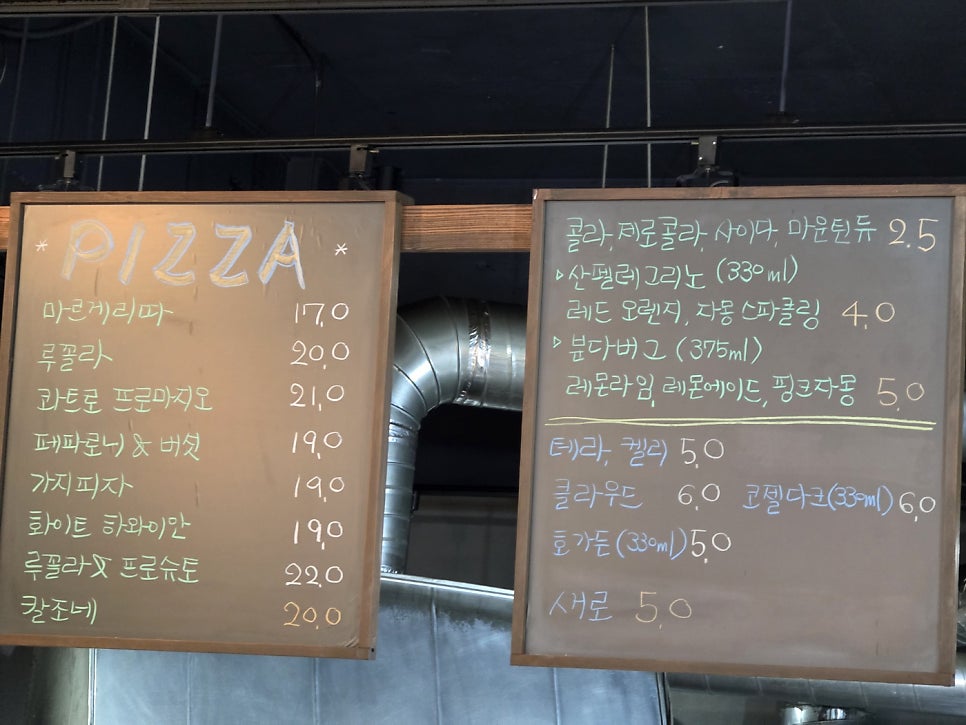 * PIZZA *
마르게리따 17,0
루꼴라 20,0
콰트로 프로마지오 21,0
페파로니 & 버섯 19,0
가지피자 19,0
화이트 하와이안 19,0
루꼴라 & 프로슈토 22,0
칼조네 20,0
콜라, 제로콜라, 사이다, 마운틴듀 2.5
▹산펠레그리노 (330ml)
레드 오렌지, 자몽 스파클링 4,0
▹분다버그 (375ml)
레몬라임, 레몬에이드, 핑크자몽 5,0
테라, 켈리 5,0
클라우드 6,0 코젤다크(330ml) 6,0
호가든(330ml) 5,0
새로 5,0